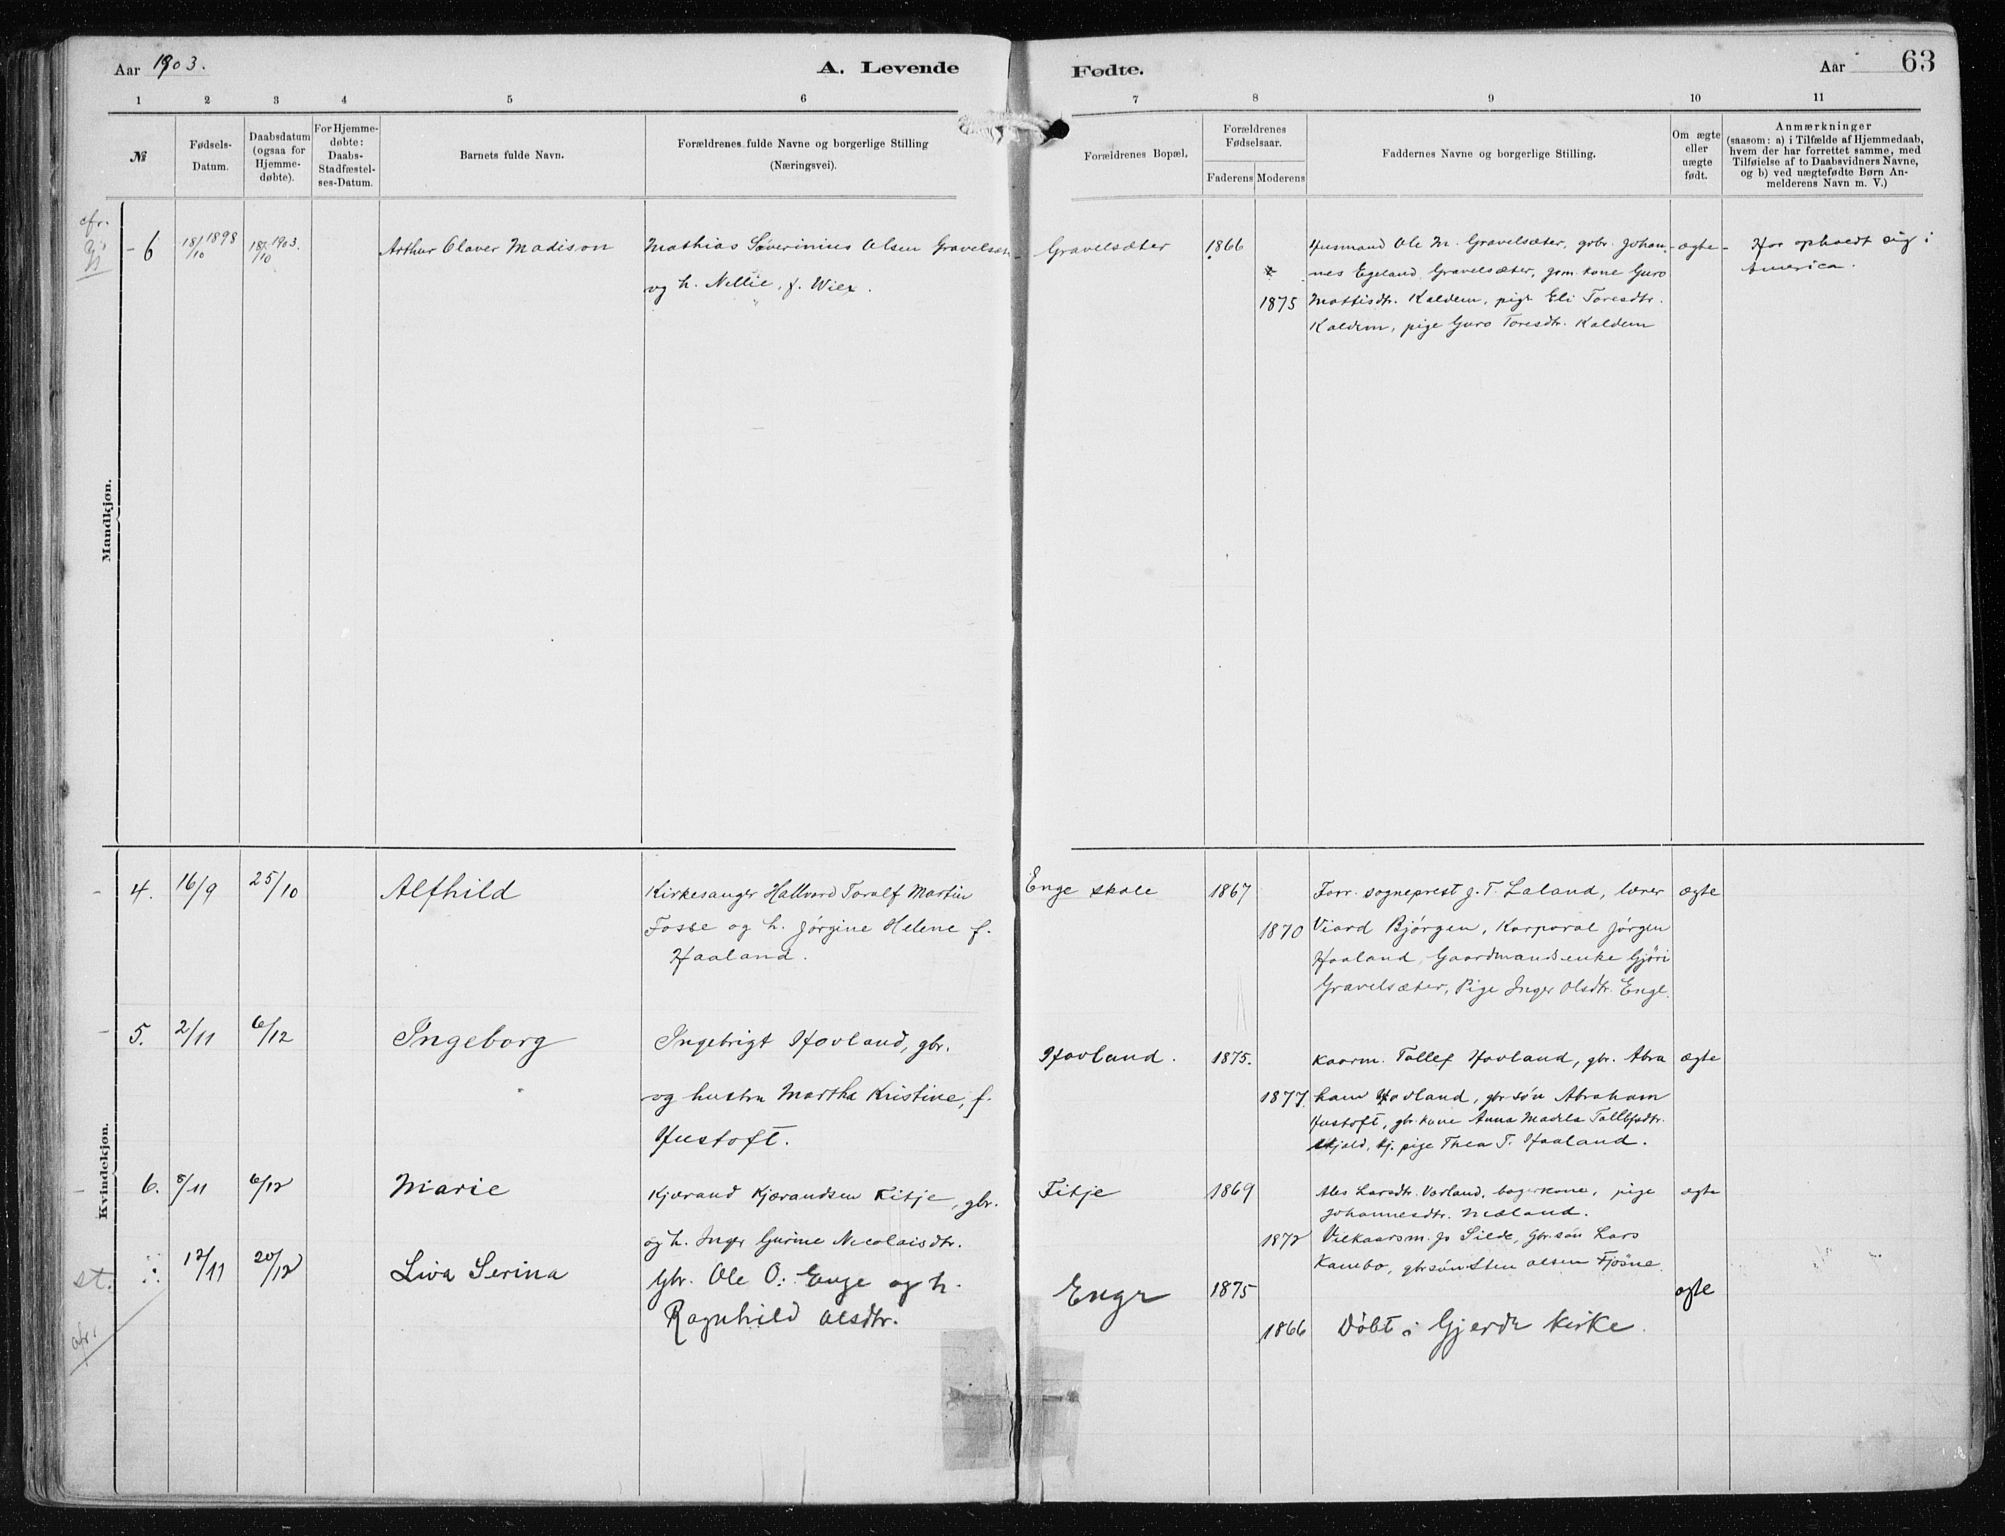 Aar 1903.
A. Levende
Fødte.
Aar
63
1 2 3 4 5 6 7 8 9 10 11
№
Fødsels-
Datum.
Daabsdatum
(ogsaa for
Hjemme-
døbte).
For Hjemme-
døbte:
Daabs-
Stadfæstel-
ses-Datum.
Barnets fulde Navn.
Forældrenes fulde Navne og borgerlige Stilling
(Næringsvei).
Forældrenes Bopæl.
Forældrenes
Fødselsaar.
Faderens Moderens
Faddernes Navne og borgerlige Stilling.
Om ægte
eller
uægte
født.
Anmærkninger
(saasom: a) i Tilfælde af Hjemmedaab,
hvem der har forrettet samme, med
Tilføielse af to Daabsvidners Navne,
og b) ved uægtefødte Børn An-
melderens Navn m. V.)
Mandkjøn.
cfr.
6
18/10 1898
18/10 1903.
Arthur Olaver Madison
Mathias Severinius Olsen Gravelsæt
og h. Nellie, f. Wiex.
Gravelsæter
1866
1875
Husmand Ole M. Gravelsæter, grbr. Johan-
nes Egeland, Gravelsæter, gm. kone Guro
Mattisdtr. Kaldem, pige Eli Toresdtr.
Kaldem, pige Guro Toresdtr. Kaldem
ægte
Har opholdt sig i
America.
Kvindekjøn.
4.
16/9
25/10
Alfhild
Kirkesanger Hallvard Toralf Martin
Fosse og h. Jørgine Helene f.
Haaland.
Enge skole
1867
1870
Forr. sogneprest J. T. Laland, lærer
Viard Bjørgen, Korporal Jørgen
Haaland, Gaardmandsenke Gjøri
Gravelsæter, Pige Inger Olsdtr. Enge.
ægte
5.
2/11
6/12
Ingeborg
Ingebrigt Hovland, gbr.
og hustru Martha Kristine, f.
Hustoft.
Hovland.
1875.
1877.
Kaarm. Tollef Hovland, gbr. Abra
ham Hovland, gbr søn Abraham
Hustoft, gbr. kone Anna Tollefsdtr.
Skjold, tj. pige Thea T. Haaland.
ægte
6.
8/11
6/12
Marie
Kjærand Kjærandsen Fitje, gbr.
og h. Inger Gurine Nicolaisdtr.
Fitje
1869
1872
Larsdtr. Vorland, bagerkone, pige
Johannesdtr. Mæland.
Vilkaarsm. Jo Silde, gbr søn Lars
Kambo, gbr søn Sten Olsen Fjøsne.
ægte
st.
cfr.
12/11
20/12
Liva Serina
Gbr. Ole O. Enge og h.
Ragnhild Olsdtr.
Enge
1875
1866
Døbt i Gjerde kirke.
ægte